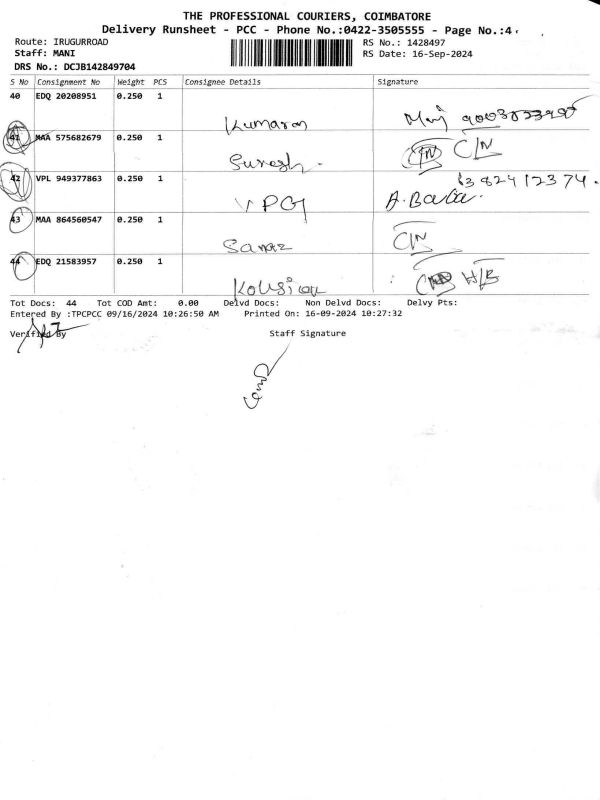 THE PROFESSIONAL COURIERS, COIMBATORE
Delivery Runsheet - PCC - Phone No.:0422-3505555 - Page No.:4
Route: IRUGURROAD
RS No.: 1428497
Staff: MANI
RS Date: 16-Sep-2024
DRS No.: DCJB142849704
S No Consignment No Weight PCS Consignee Details Signature
40 EDQ 20208951 0.250 1
Kumaran
41 MAA 575682679 0.250 1
Suresh. C/N
42 VPL 949377863 0.250 1
VPG A.Baba.
43 MAA 864560547 0.250 1
C/N
44 EDQ 21583957 0.250 1
H/B
Tot Docs: 44 Tot COD Amt: 0.00 Delvd Docs: Non Delvd Docs: Delvy Pts:
Entered By :TPCPCC 09/16/2024 10:26:50 AM Printed On: 16-09-2024 10:27:32
Verified By Staff Signature